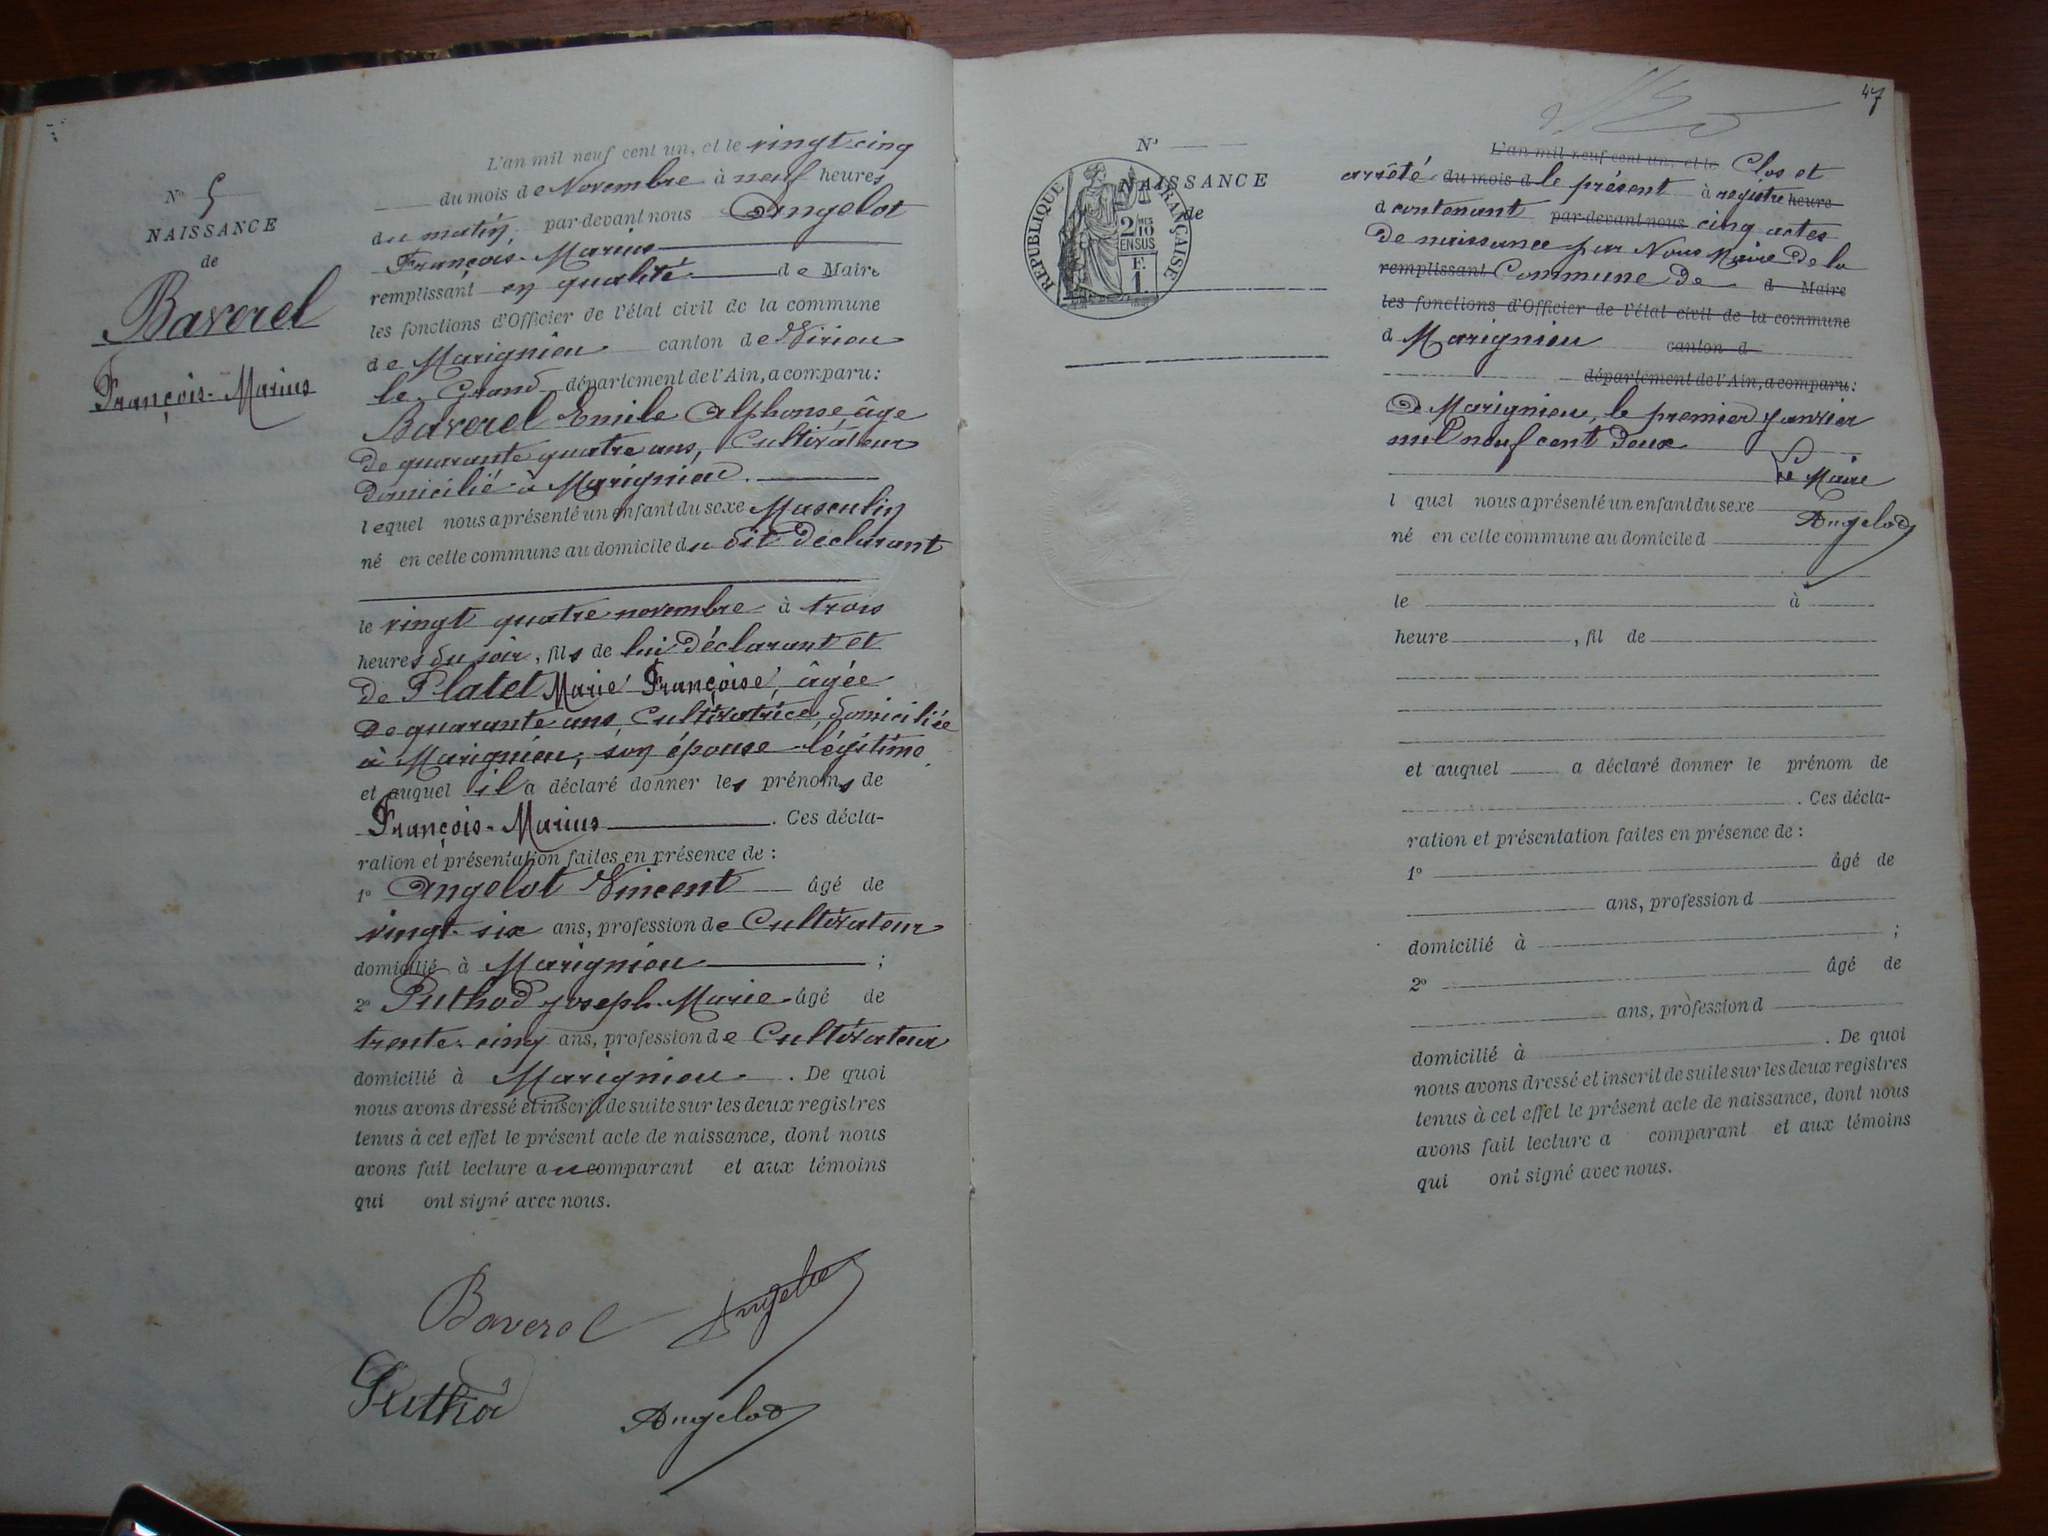 N° 5
NAISSANCE
de
Baverel
François-Marius
L'an mil neuf cent un, et le vingt-cinq
du mois de Novembre à neuf heures
du matin, par-devant nous Angelot
François-Marius
remplissant en qualité de Maire
les fonctions d'Officier de l'état civil de la commune
de Marignieu canton de Virieu
le-Grand département de l'Ain, a comparu:
Baverel Emile Alphonse âge
de quarante quatre ans, Cultivateur
domicilié à Marignieu.
lequel nous a présenté un enfant du sexe Masculin
né en cette commune au domicile du dit déclarant
le vingt quatre novembre à trois
heures du soir, fils de lui déclarant et
de Platet Marie Françoise, âgée
de quarante ans, Cultivatrice, domiciliée
à Marignieu, son épouse légitime
et auquel il a déclaré donner les prénoms de
François-Marius. Ces décla-
ration et présentation faites en présence de :
1° Angelot Vincent âgé de
vingt-six ans, profession de Cultivateur
domicilié à Marignieu ;
2° Puthod Joseph-Marie âgé de
trente-cinq ans, profession de Cultivateur
domicilié à Marignieu. De quoi
nous avons dressé et inscrit de suite sur les deux registres
tenus à cet effet le présent acte de naissance, dont nous
avons fait lecture au comparant et aux témoins
qui ont signé avec nous.
Baverel Angelot
Puthod
Angelot
47
N°
NAISSANCE
de
RÉPUBLIQUE FRANÇAISE
2/10
EN SUS
1 F.
L'an mil neuf cent un, et le Clos et
arrêté du mois d le présent à registre heure
d contenant par-devant nous cinq actes
de naissance par Nous Maire de la
remplissant Commune de d Maire
les fonctions d'Officier de l'état civil de la commune
d Marignieu canton d
département de l'Ain, a comparu:
A Marignieu, le premier Janvier
mil neuf cent deux
Le Maire
l quel nous a présenté un enfant du sexe
Angelot
né en cette commune au domicile d
le à
heure , fil de
et auquel a déclaré donner le prénom de
. Ces décla-
ration et présentation faites en présence de :
1° âgé de
ans, profession d
domicilié à ;
2° âgé de
ans, profession d
domicilié à . De quoi
nous avons dressé et inscrit de suite sur les deux registres
tenus à cet effet le présent acte de naissance, dont nous
avons fait lecture a comparant et aux témoins
qui ont signé avec nous.